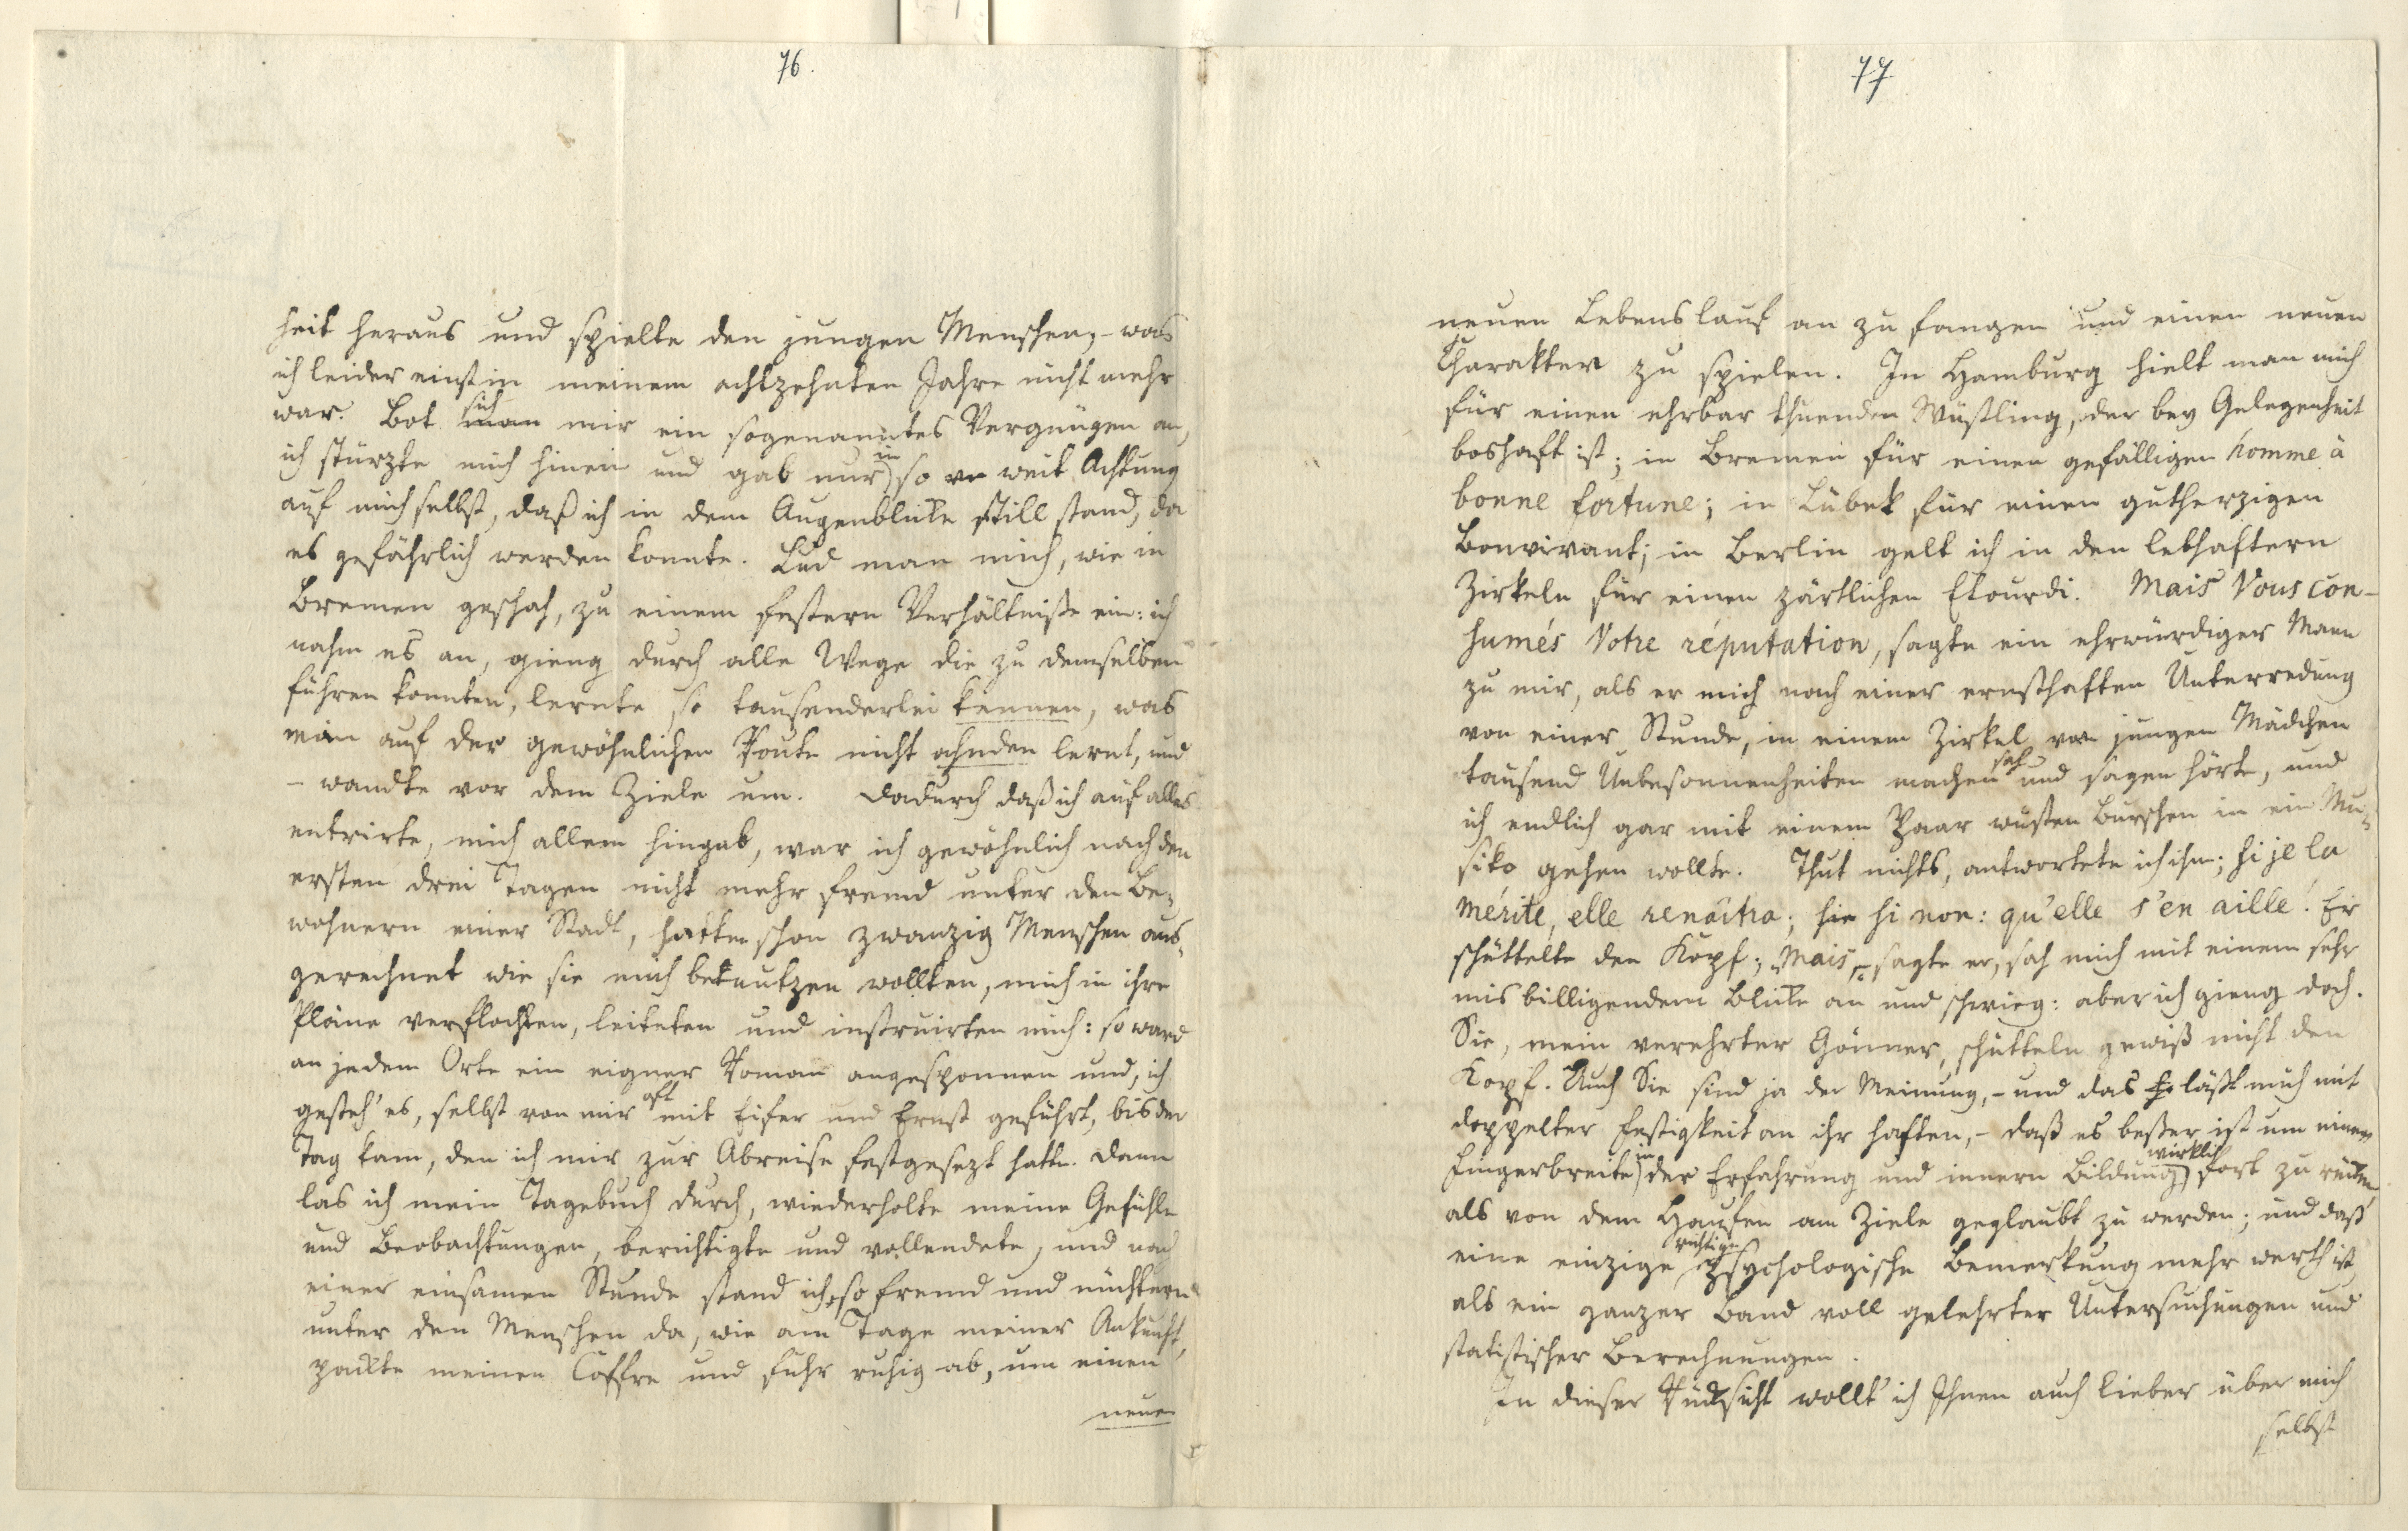 76.
heit heraus und spielte den jungen Menschen, - was
ich leider einst in meinem achtzehnten Jahre nicht mehr
war. Bot man sich mir ein sogenanntes Vergnügen an,
ich stürzte mich hinein und gab nur in so weit Achtung
auf mich selbst, daß ich in dem Augenblicke still stand, da
es gefährlich werden konnte. Lud man mich, wie in
Bremen geschah, zu einem festern Verhältniße ein: ich
nahm es an, gieng durch alle Wege die zu demselben
führen konnten, lernte so tausenderlei kennen, was
man auf der gewöhnlichen Route nicht ahnden lernt, und
- wandte vor dem Ziele um. Dadurch daß ich auf alles
entrirte, mich allem hingab, war ich gewöhnlich nach den
ersten drei Tagen nicht mehr fremd unter den Be-
wohnern einer Stadt, hatten schon zwanzig Menschen aus-
gerechnet wie sie mich benutzen wollten, mich in ihre
Pläne verflochten, leiteten und instruirten mich: so ward
an jedem Orte ein eigner Roman angesponnen und, ich
gesteh' es, selbst von mir oft mit Eifer und Ernst geführt, bis der
Tag kam, den ich mir zur Abreise festgesezt hatte. Dann
las ich mein Tagebuch durch, wiederholte meine Gefühle
und Beobachtungen, berichtigte und vollendete, und nach
einer einsamen Stunde stand ich so fremd und nüchtern
unter den Menschen da, wie am Tage meiner Ankunft,
packte meinen Coffre und fuhr ruhig ab, um einen
neuen
77
neuen Lebenslauf an zu fangen und einen neuen
Charakter zu spielen. In Hamburg hielt man mich
für einen ehrbar thuenden Wüstling, der bey Gelegenheit
boshaft ist; in Bremen für einen gefälligen homme à
bonne fortune; in Lübek für einen gutherzigen
Bonvivant; in Berlin gelt ich in den lebhaftern
Zirkeln für einen zärtlichen Etourdi. Mais Vous con-
sumés Votre réputation, sagte ein ehrwürdiger Mann
zu mir, als er mich nach einer ernsthaften Unterredung
von einer Stunde, in einem Zirkel von jungen Mädchen
tausend Unbesonnenheiten machen sah und sagen hörte, und
ich endlich gar mit einem Paar wüsten Burschen in ein Mu-
siko gehen wollte. Thut nichts, antwortete ich ihm; si je la
mérite, elle renaîtra; sie si non: qu'elle s'en aille! Er
schüttelte den Kopf; „Mais,“ sagte er, sah mich mit einem sehr
misbilligendem Blicke an und schwieg: aber ich gieng doch.
Sie, mein verehrter Gönner, schütteln gewiß nicht den
Kopf. Auch Sie sind ja der Meinung, - und das läßt mich mit
doppelter Festigkeit an ihr haften, - daß es beßer ist um einen
Fingerbreite in der Erfahrung und innern Bildung wirklich fort zu rücken
als von dem Haufen am Ziele geglaubt zu werden; und daß
eine einzige richtige psychologische Bemerkung mehr werth ist,
als ein ganzer Band voll gelehrter Untersuchungen und
statistischer Berechnungen.
In dieser Rücksicht wollt' ich Ihnen auch lieber über mich
selbst